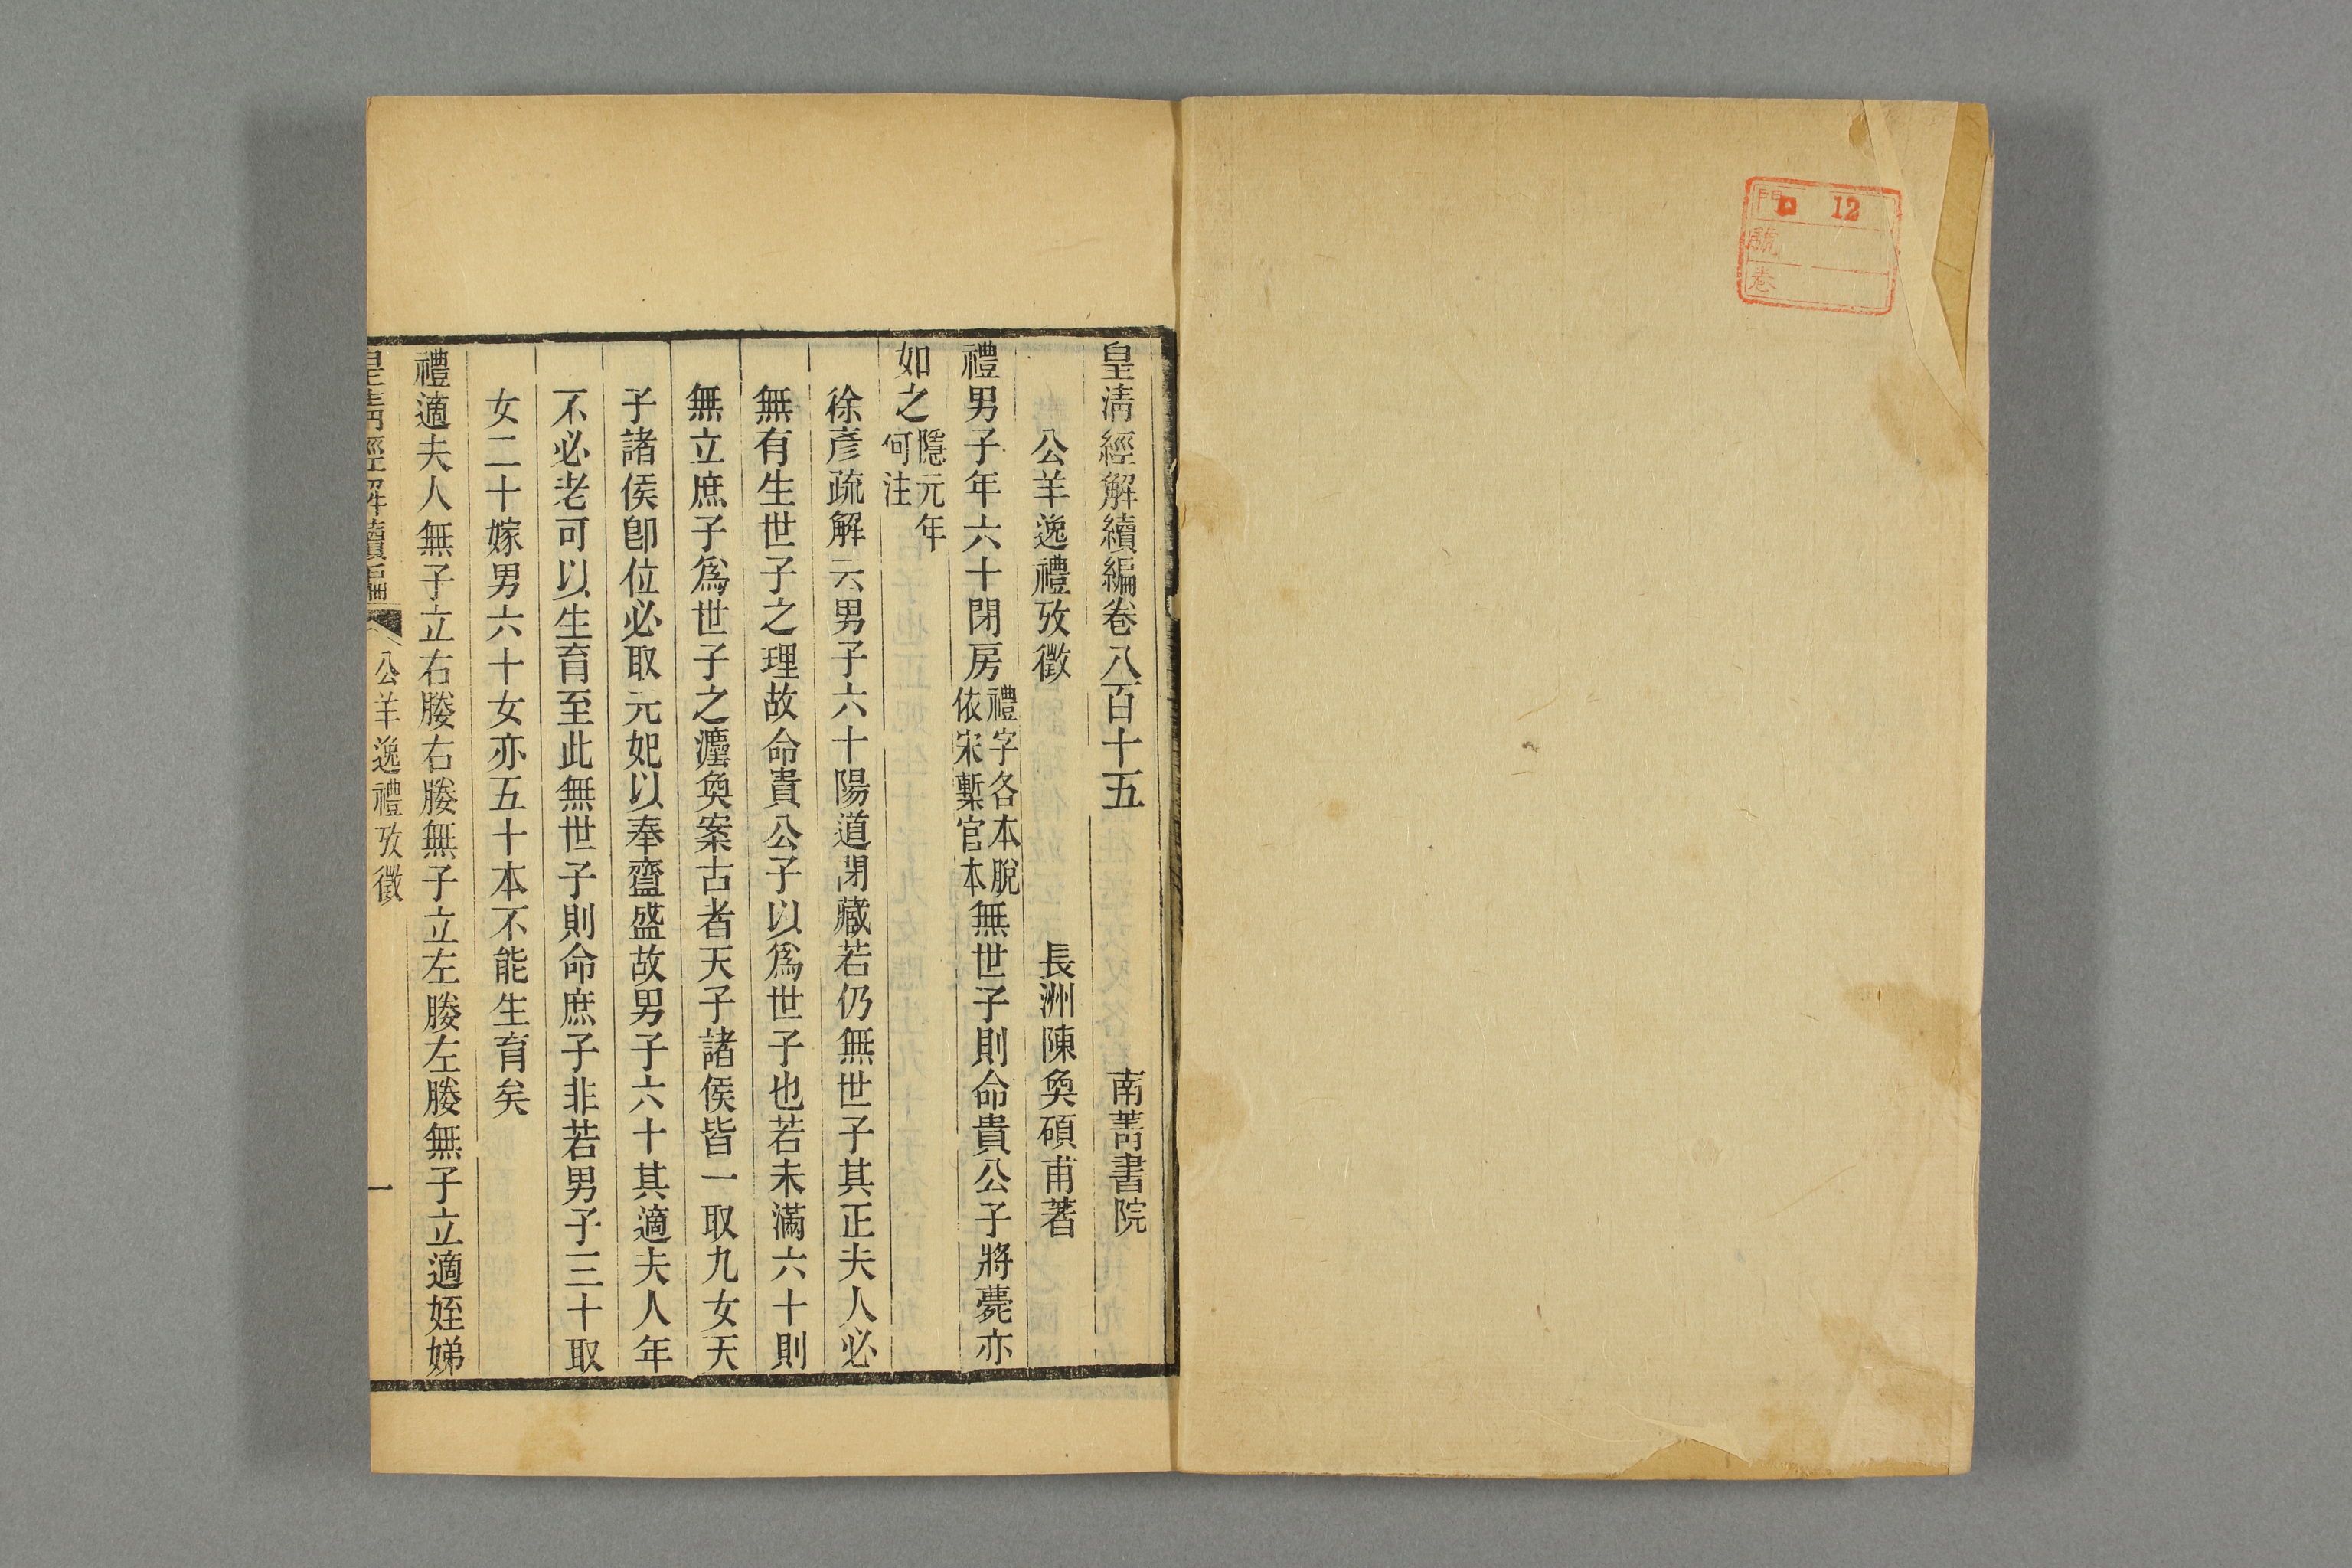 門 口 12
號
卷
皇清經解續編卷八百十五 南菁書院
公羊逸禮攷徵 長洲陳奐碩甫著
禮男子年六十閉房禮字各本脫依宋槧官本無世子則命貴公子將薨亦
如之隱元年何注
徐彥疏解云男子六十陽道閉藏若仍無世子其正夫人必
無有生世子之理故命貴公子以爲世子也若未滿六十則
無立庶子爲世子之灋奐案古者天子諸侯皆一取九女天
子諸侯卽位必取元妃以奉齍盛故男子六十其適夫人年
不必老可以生育至此無世子則命庶子非若男子三十取
女二十嫁男六十女亦五十本不能生育矣
禮適夫人無子立右媵右媵無子立左媵左媵無子立適姪娣
皇清經解續編 公羊逸禮攷徵 一